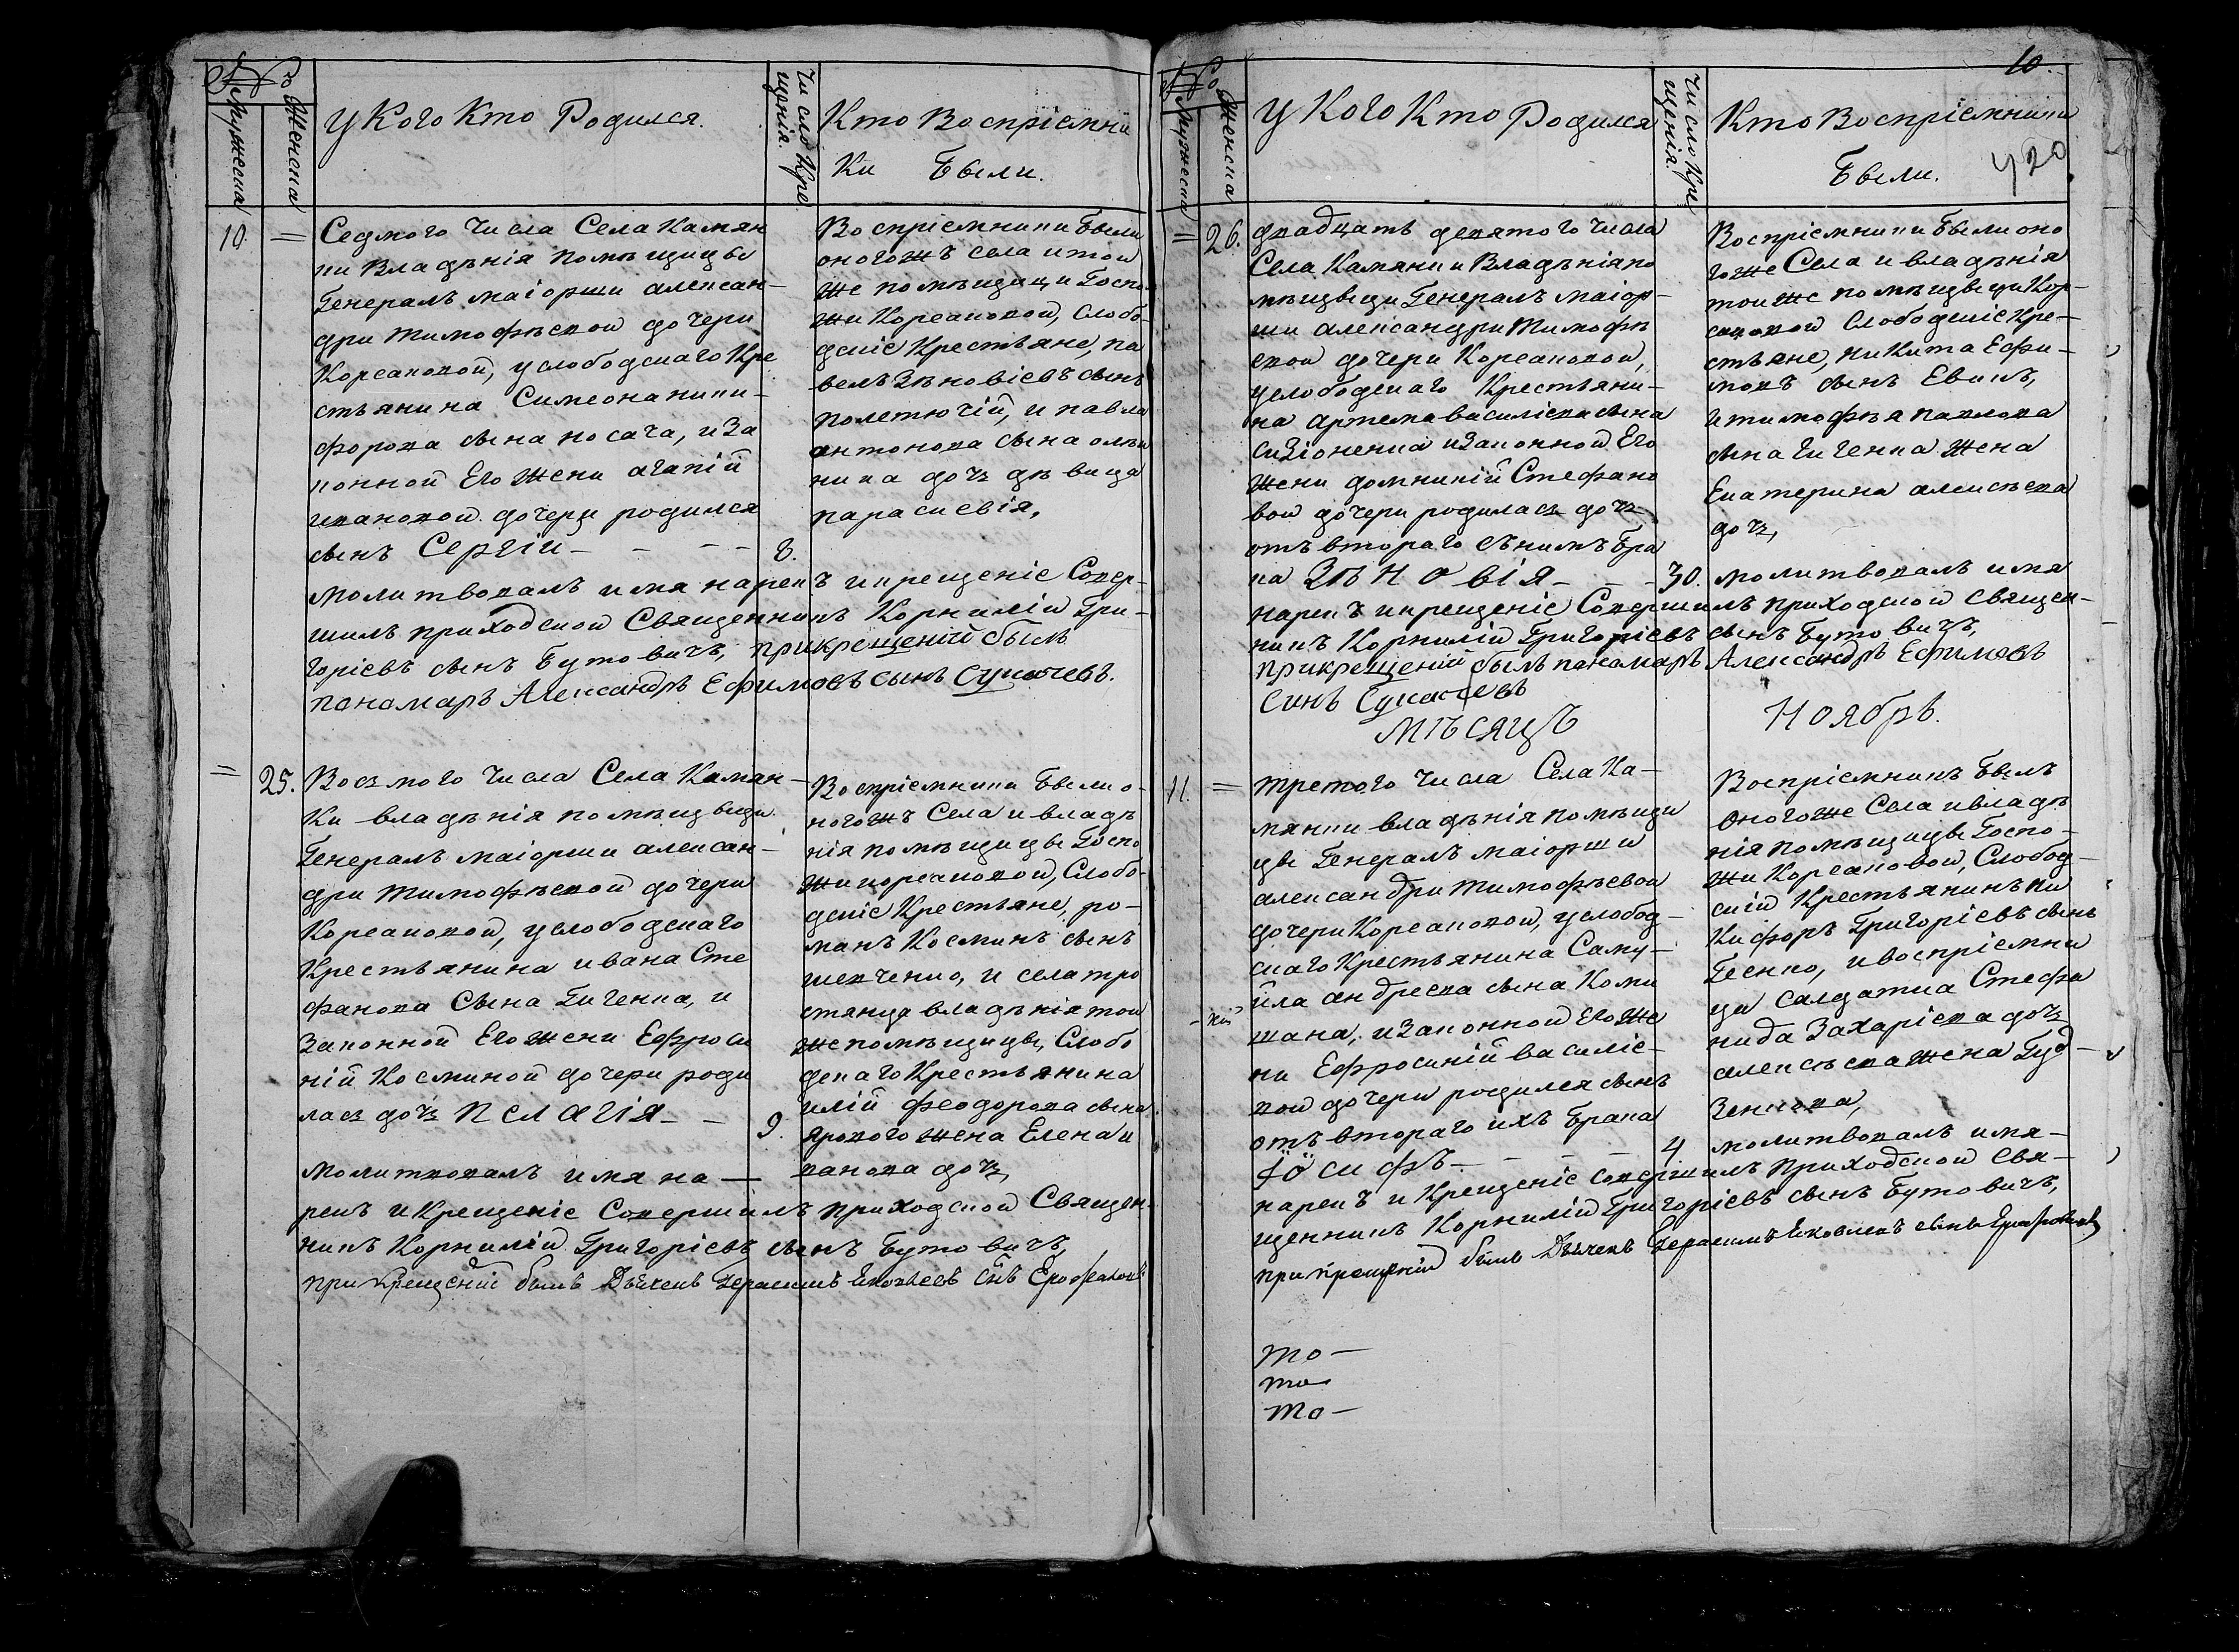 №
Мужеска
Женска
У Кого Кто Родился.
Число Кре
щенія.
Кто Воспріемни
ки Были.
10. =
Седмого Числа Села Камян
ки Владѣнія помѣщицы
Генералъ маіорши алексан-
дри тимофѣевой дочери
Корсаковой, услободскаго Кре
стьянина Симеона ники-
форова сына носача, иза
конной Его жени агапій
ивановой дочери родился
сынъ Сергій - - - - 8.
Воспріемники Были
оногожъ села итои
же помѣщици Госпо-
жи Корсаковой, Слобо-
дскіе Крестьяне, па
велъ Зѣновіевъ сынъ
полетючій, и павла
антонова сына олѣи
ника дочь дѣвица
параскевія,
молитвовалъ имя нарекъ икрещеніе Совер-
шилъ приходской Священникъ Корнилій Гри-
горіевъ сынъ Бутовичъ, прикрещеній былъ
панамаръ Александръ Ефимовъ сынъ Сукачевъ.
= 25.
Восмого Числа Села Камян-
ки владѣнія помѣщици
Генералъ маіорши алексан-
дри тимофѣевой дочери
Корсаковой, услободскаго
Крестьянина ивана Сте
фанова Сына Гиченка, и
Законной Его жени Ефроси
ній Косминой дочери роди
лась дочь Пелагія - - 9.
Воспріемники Были о-
ногожъ Села и владѣ
нія помѣщицы Госпо
жи корсаковой, Слобо-
дскіе Крестьяне, ро-
манъ Косминъ сынъ
шевченко, и села тро
стянца владѣнія той
же помѣщицы, Слобо
дскаго Крестьянина
илій феодорова сына
ярового жена Елена и
ванова дочь,
молитвовалъ имя на-
рекъ и Крещеніе Совершилъ приходской Священ-
никъ Корнилій Григоріевъ сынъ Бутовичъ,
при крещеній былъ Дьячекъ Герасимъ Яковлевъ снъ
№
Мужеска
Женска
У Кого Кто Родился
Число Кре
щенія.
Кто Воспріемники
Были.
10.
420
= 26.
двадцать девятого числа
Села Камянки Владѣнія по
мѣщыци Генералъ маіор-
ши александри тимофѣ
евой дочери Корсаковой,
услободскаго Крестьяни-
на артема василіева сына
Сизіоненка иЗаконной Его
жени домникій Стефано
вой дочери родилась дочь
отъ втораго съ нимъ бра
ка Зѣновія - - - 30.
Воспріемники Были оно
гоже Села и владѣнія
тоиже помѣщыци Кор-
саковой Слободскіе Кре-
стьяне, никита Ефи-
мовъ сынъ Евикъ,
и тимофѣя павлова
сына Гиченка жена
Екатерина алексѣева
дочь,
молитвовалъ имя
нарекъ икрещеніе Совершилъ приходской Священ-
никъ Корнилій Григоріевъ сынъ Бутовичъ,
прикрещеній былъ панамаръ Александръ Ефимовъ
синъ Сукачевъ
Мѣсяцъ Ноябрь.
11. =
третого Числа Села Ка-
мянки владѣнія помѣщи
цы Генералъ маіорши
александри тимофѣевой
дочери Корсаковой, услобод-
скаго Крестьянина Саму-
ила андреева сына Коми
шана, изаконной Его же
ни Ефросиній василіе-
вой дочери родился сынъ
отъ втораго ихъ брака
Іосифъ - - - - 4
Воспріемникъ Былъ
Оногоже Села ивладѣ
нія помѣщицы Госпо-
жи Корсаковой, Слобод-
скій Крестьянинъ ни
кифоръ Григоріевъ сынъ
Гесенко, и воспріемни
ца салдатка Стефа
нида Захаріева дочь
алексѣева жена Гуд-
Зенкова,
молитвовалъ имя-
нарекъ и Крещеніе совершилъ приходской Свя-
щенникъ Корнилій Григоріевъ сынъ Бутовичъ,
при крещеній былъ Дьячекъ Герасимъ Яковлевъ сынъ
то -
то
то -